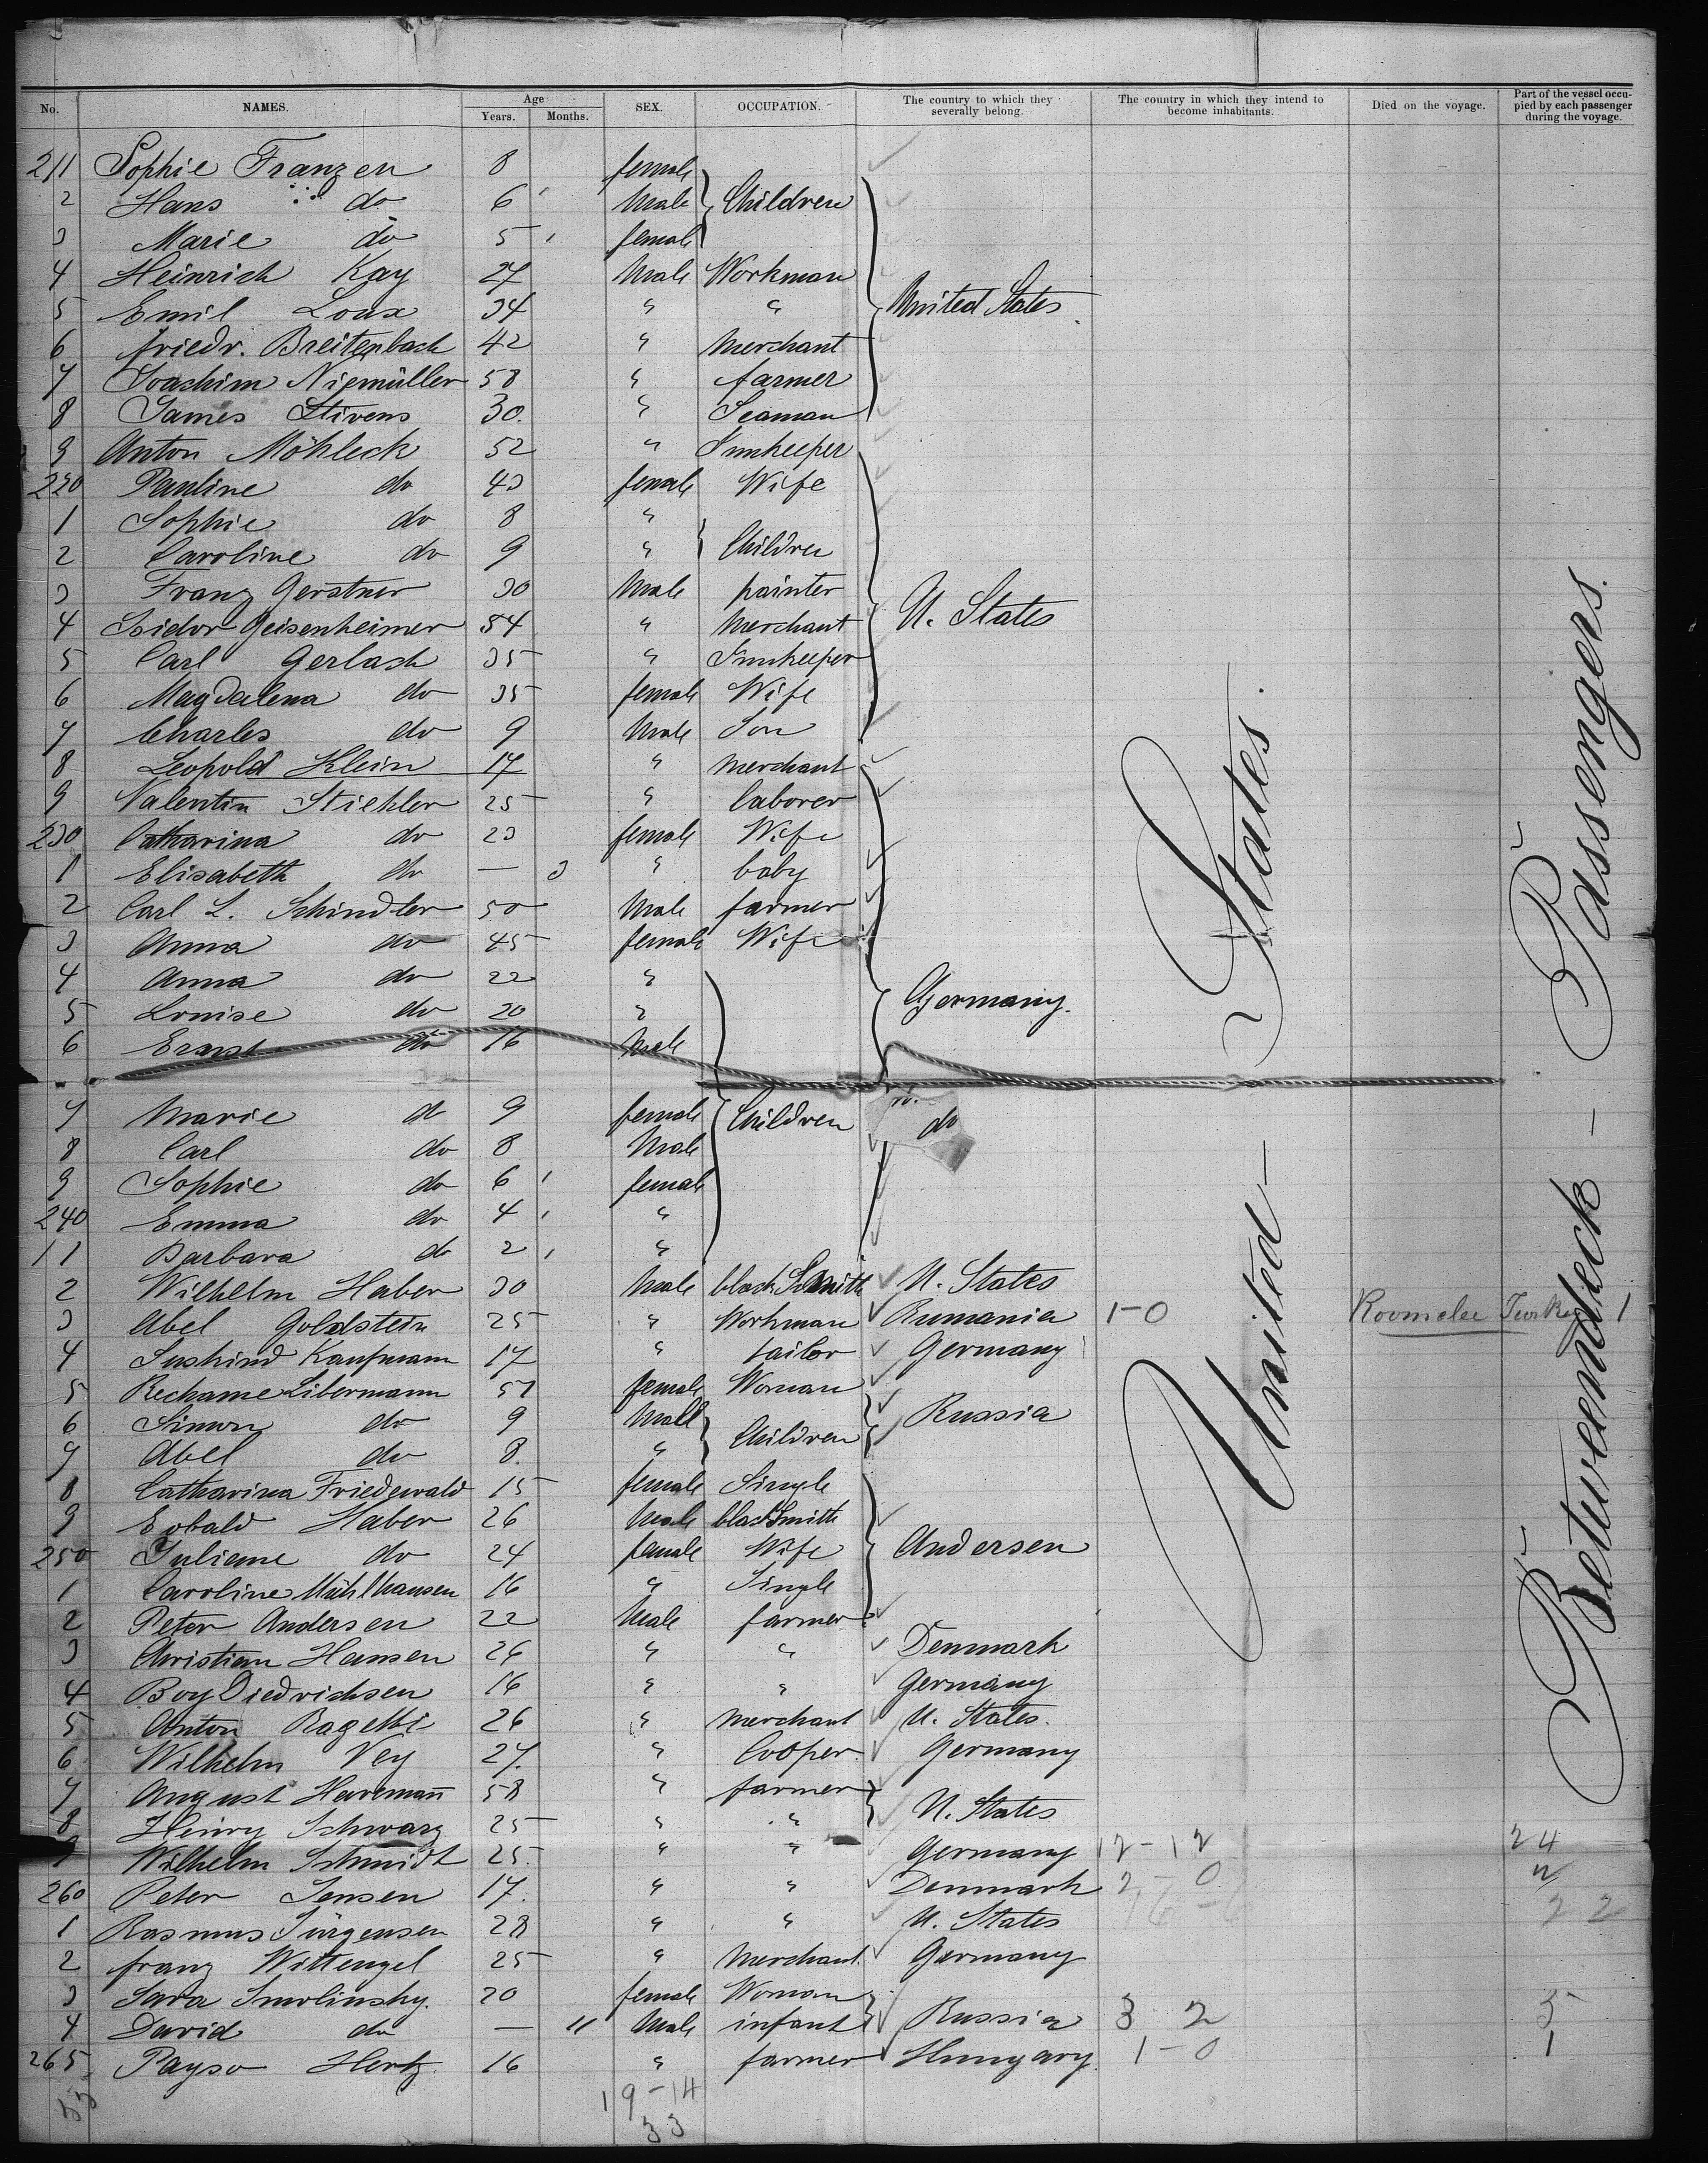 No. NAMES. Age Years. Months. SEX. OCCUPATION. The country to which they severally belong. The country in which they intend to become inhabitants. Died on the voyage. Part of the vessel occupied by each passenger during the voyage.
211 Sophie Franzen 8 female
2 Hans do 6 Male Children
3 Marie do 5 female
4 Heinrich Kay 27 Male Workman
5 Emil Loux 34 " " United States
6 friedr. Breitenbach 42 " Merchant
7 Joachim Niemüller 58 " farmer
8 James Stivens 30. " Seaman
9 Anton Möhleck 52 " Innkeeper
220 Pauline do 43 female Wife
1 Sophie do 8 "
2 Caroline do 9 " Children
3 Franz Gerstner 30 Male painter
4 Isidor Geisenheimer 54 " Merchant U. States
5 Carl Gerlach 35 " Innkeeper
6 Magdalena do 35 female Wife
7 Charles do 9 Male Son
8 Leopold Klein 17 " merchant
9 Valentin Stiehler 25 " laborer
230 Catharina do 23 female Wife
1 Elisabeth do — 3 " baby
2 Carl L. Schindler 50 Male farmer
3 Anna do 45 female Wife
4 Anna do 22 "
5 Louise do 20 " Germany.
6 Ernst do 16 Male
7 Marie do 9 female Children do
8 Carl do 8 Male
9 Sophie do 6 female
240 Emma do 4 "
1 Barbara do 2 "
2 Wilhelm Haber 30 Male black Smith U. States
3 Abel Goldstein 25 " Workman Rumania 1-0 Roomelee Turkey 1
4 Suskind Kaufmann 17 " tailor Germany
5 Rechame Libermann 57 female Woman
6 Simon do 9 Male Children Russia
7 Abel do 8. "
8 Catharina Friedewald 15 female Single
9 Eobald Haber 26 Male blackSmith
250 Juliane do 24 female Wife Andersen
1 Caroline Mühlhausen 16 " Single
2 Peter Andersen 22 Male farmer
3 Christian Hansen 26 " " Denmark
4 Boy Diedrichsen 16 " " Germany
5 Anton Ragetti 26 " Merchant U. States.
6 Wilhelm Vey 27. " Cooper. Germany
7 August Haremañ 58 " farmer
8 Henry Schwarz 25 " " U. States
9 Wilhelm Schmidt 25. " " Germany 12-12 24
260 Peter Jensen 17. " " Denmark 2-0 2
1 Rasmus Jürgensen 28 " " U. States 22
2 franz Wittengel 25 " Merchant. Germany
3 Sara Smolinsky. 20 female Woman
4 David do — 11 Male infant Russia 3 2 5
265 Payso Hertz 16 " farmer Hungary. 1-0 1
19-14
33
United States.
Betweendeck - Passengers.